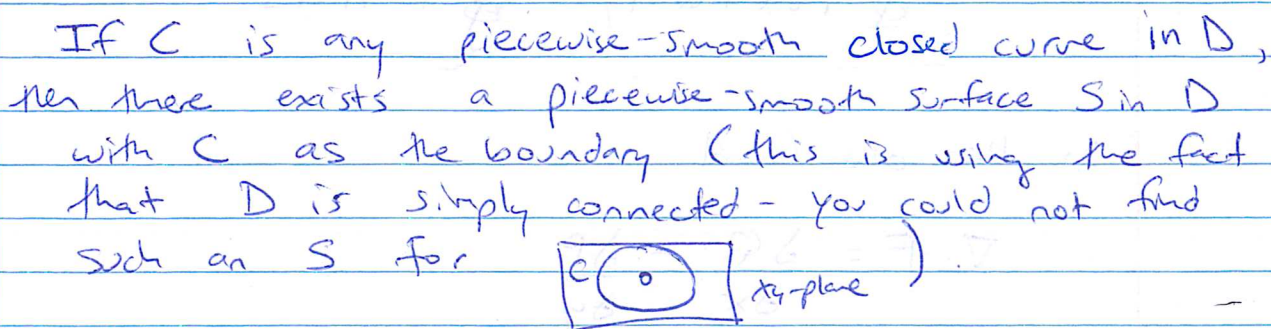 If C is any piecewise-smooth closed curve in D,
then there exists a piecewise-smooth surface S in D
with C as the boundary (this is using the fact
that D is simply connected - you could not find
such an S for C xy-plane ).